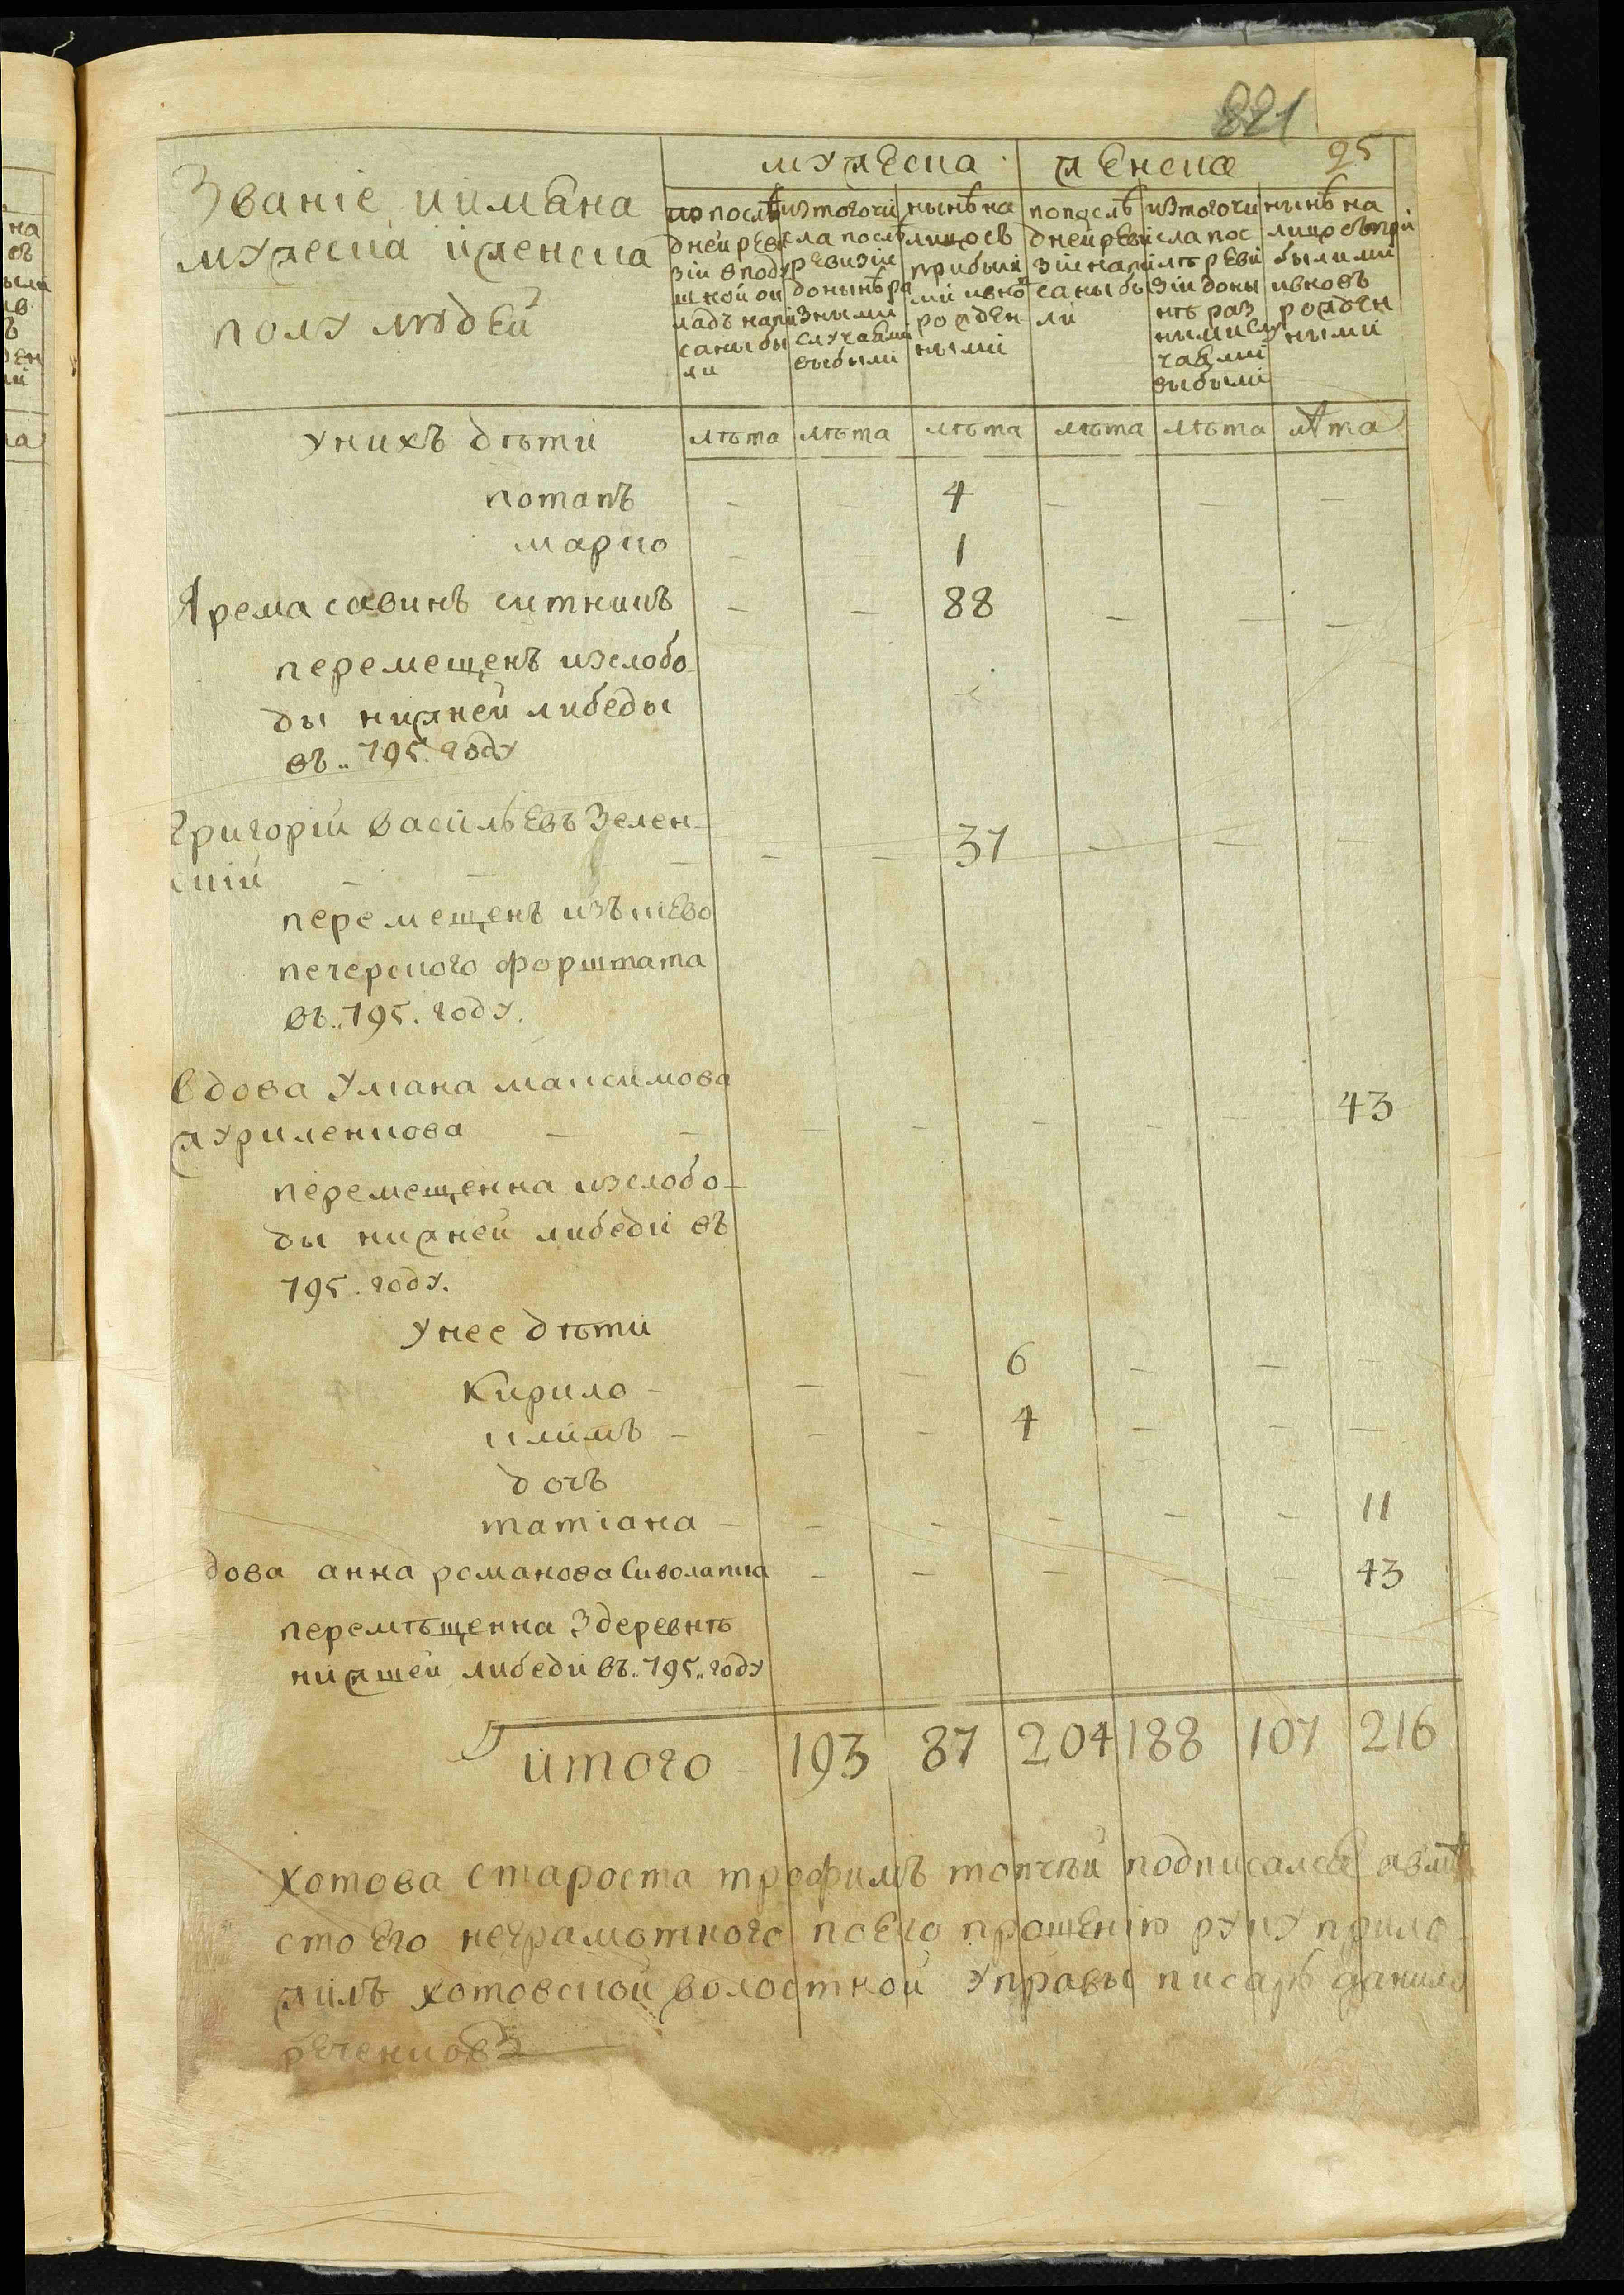 821
95
Званіе иимѣна
мужеска иженска
полу людей
мужеска
женска
по послѣ
дней реви
зіи вподу
шной ок
ладъ напи
саны бы
ли
изтогочи
сла послѣ
ревизіи
донынѣ ра
зными
случаями
выбыли
нынѣ на
лицо съ
прибыли
ми ивно
рожден
ными
попослѣ
дней реви
зіи напи
саны бы
ли
изтогочи
сла пос
лѣ реви
зіи доны
нѣ раз
ными слу
чаями
выбыли
нынѣ на
лицо съпри
былими
ивновъ
рожден
ными
унихъ дѣти
лѣта лѣта лѣта лѣта лѣта лѣта
потапъ - - 4 - - -
марко - - 1
Ярема савинъ ситникъ - - 88 - - -
перемещенъ изслобо
ды нижней либеды
въ.. 795. году
Григорій василѣевъ Зелен-
скій - - - - - 37 - - -
перемещенъ изъкіево
печерского форштата
въ..795. году.
Вдова Уліана максимова
журиленкова - - - - - - - 43
перемещенна изслобо-
ды нижней либеди въ
795. году.
Унее дѣти
Кирило - - - 6 - - -
климъ - - - 4 - - -
дочъ
татіана - - - - - - 11
дова анна романова Сиволапка - - - - - 43
перемѣщенна Здеревнѣ
нижшей либеди въ..795..году
итого - 193 87 204 188 107 216
хотова староста трофимъ топчѣй подписался авмѣ
сто Его неграмотного поЕго прошенію руку прило
жилъ хотовской волостной Управы писарь данило
реченковъ